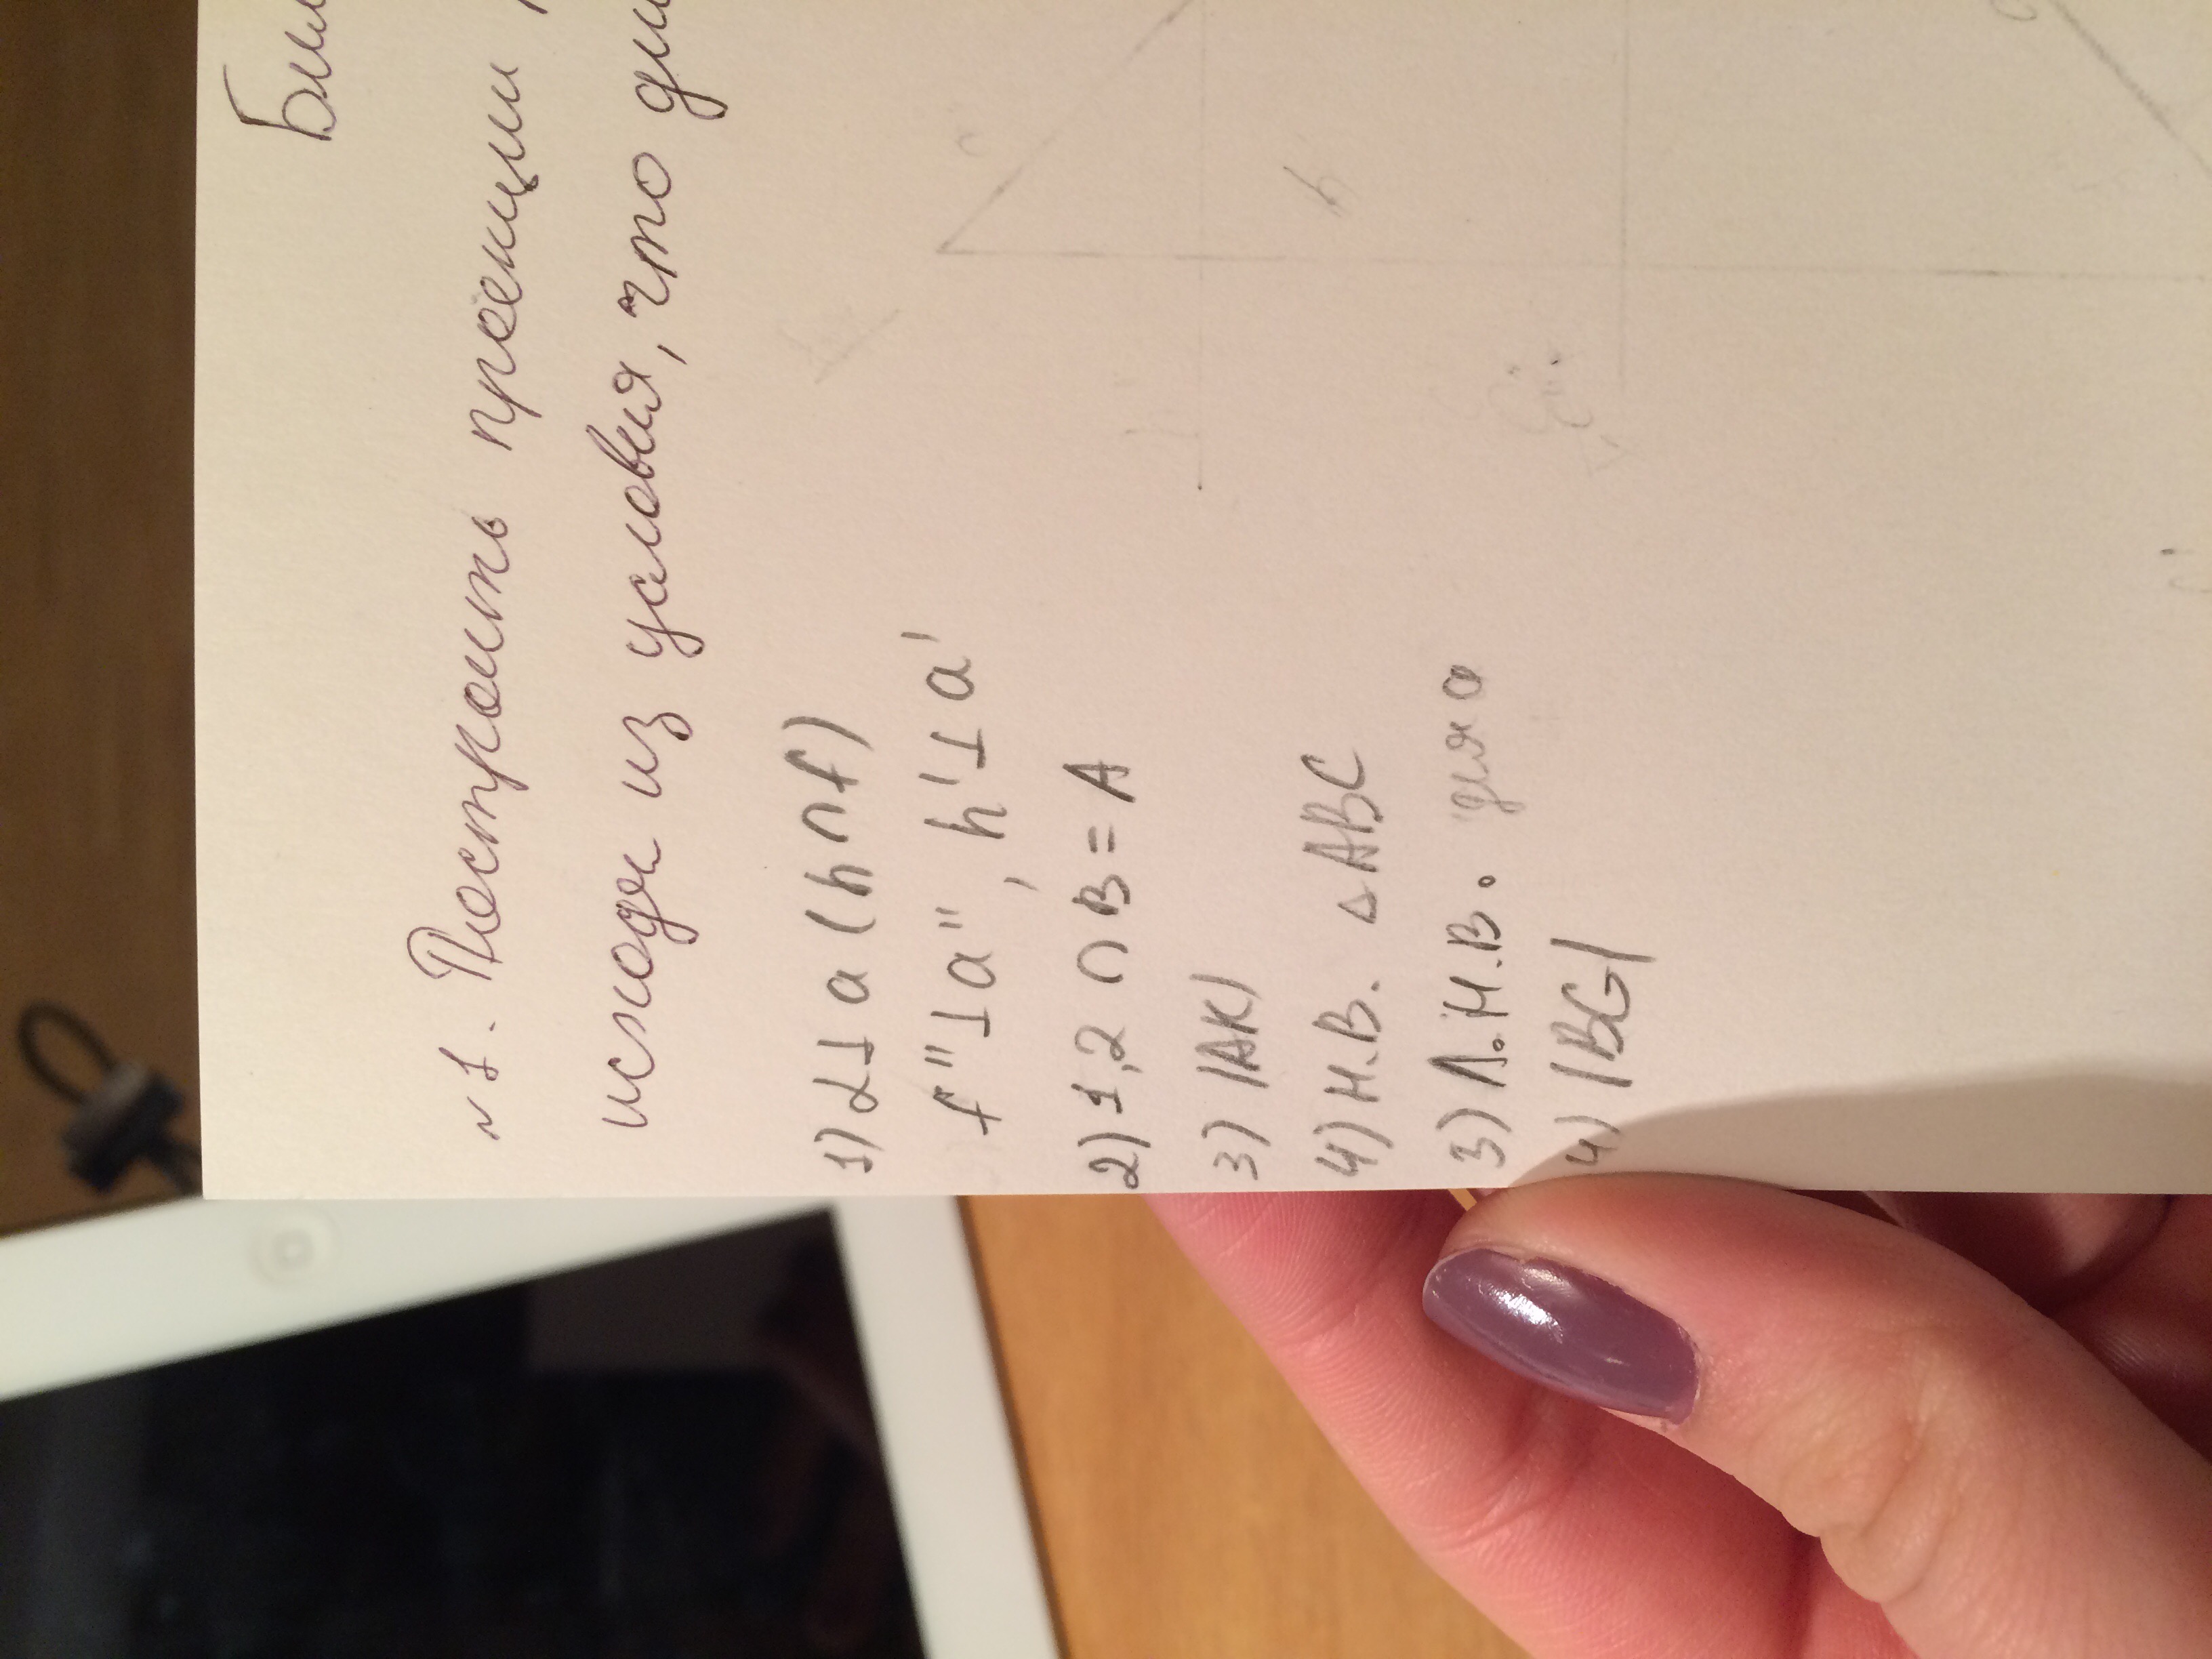 Бил
№1. Построить проекции
исходя из условия, что
1) α⊥a (h∩f)
f"⊥a", h'⊥a'
2) 1,2 ∩ B = A
3) |AK|
4) Н.В. △ABC
3) Л.Н.В. для a
4) |BG|
h